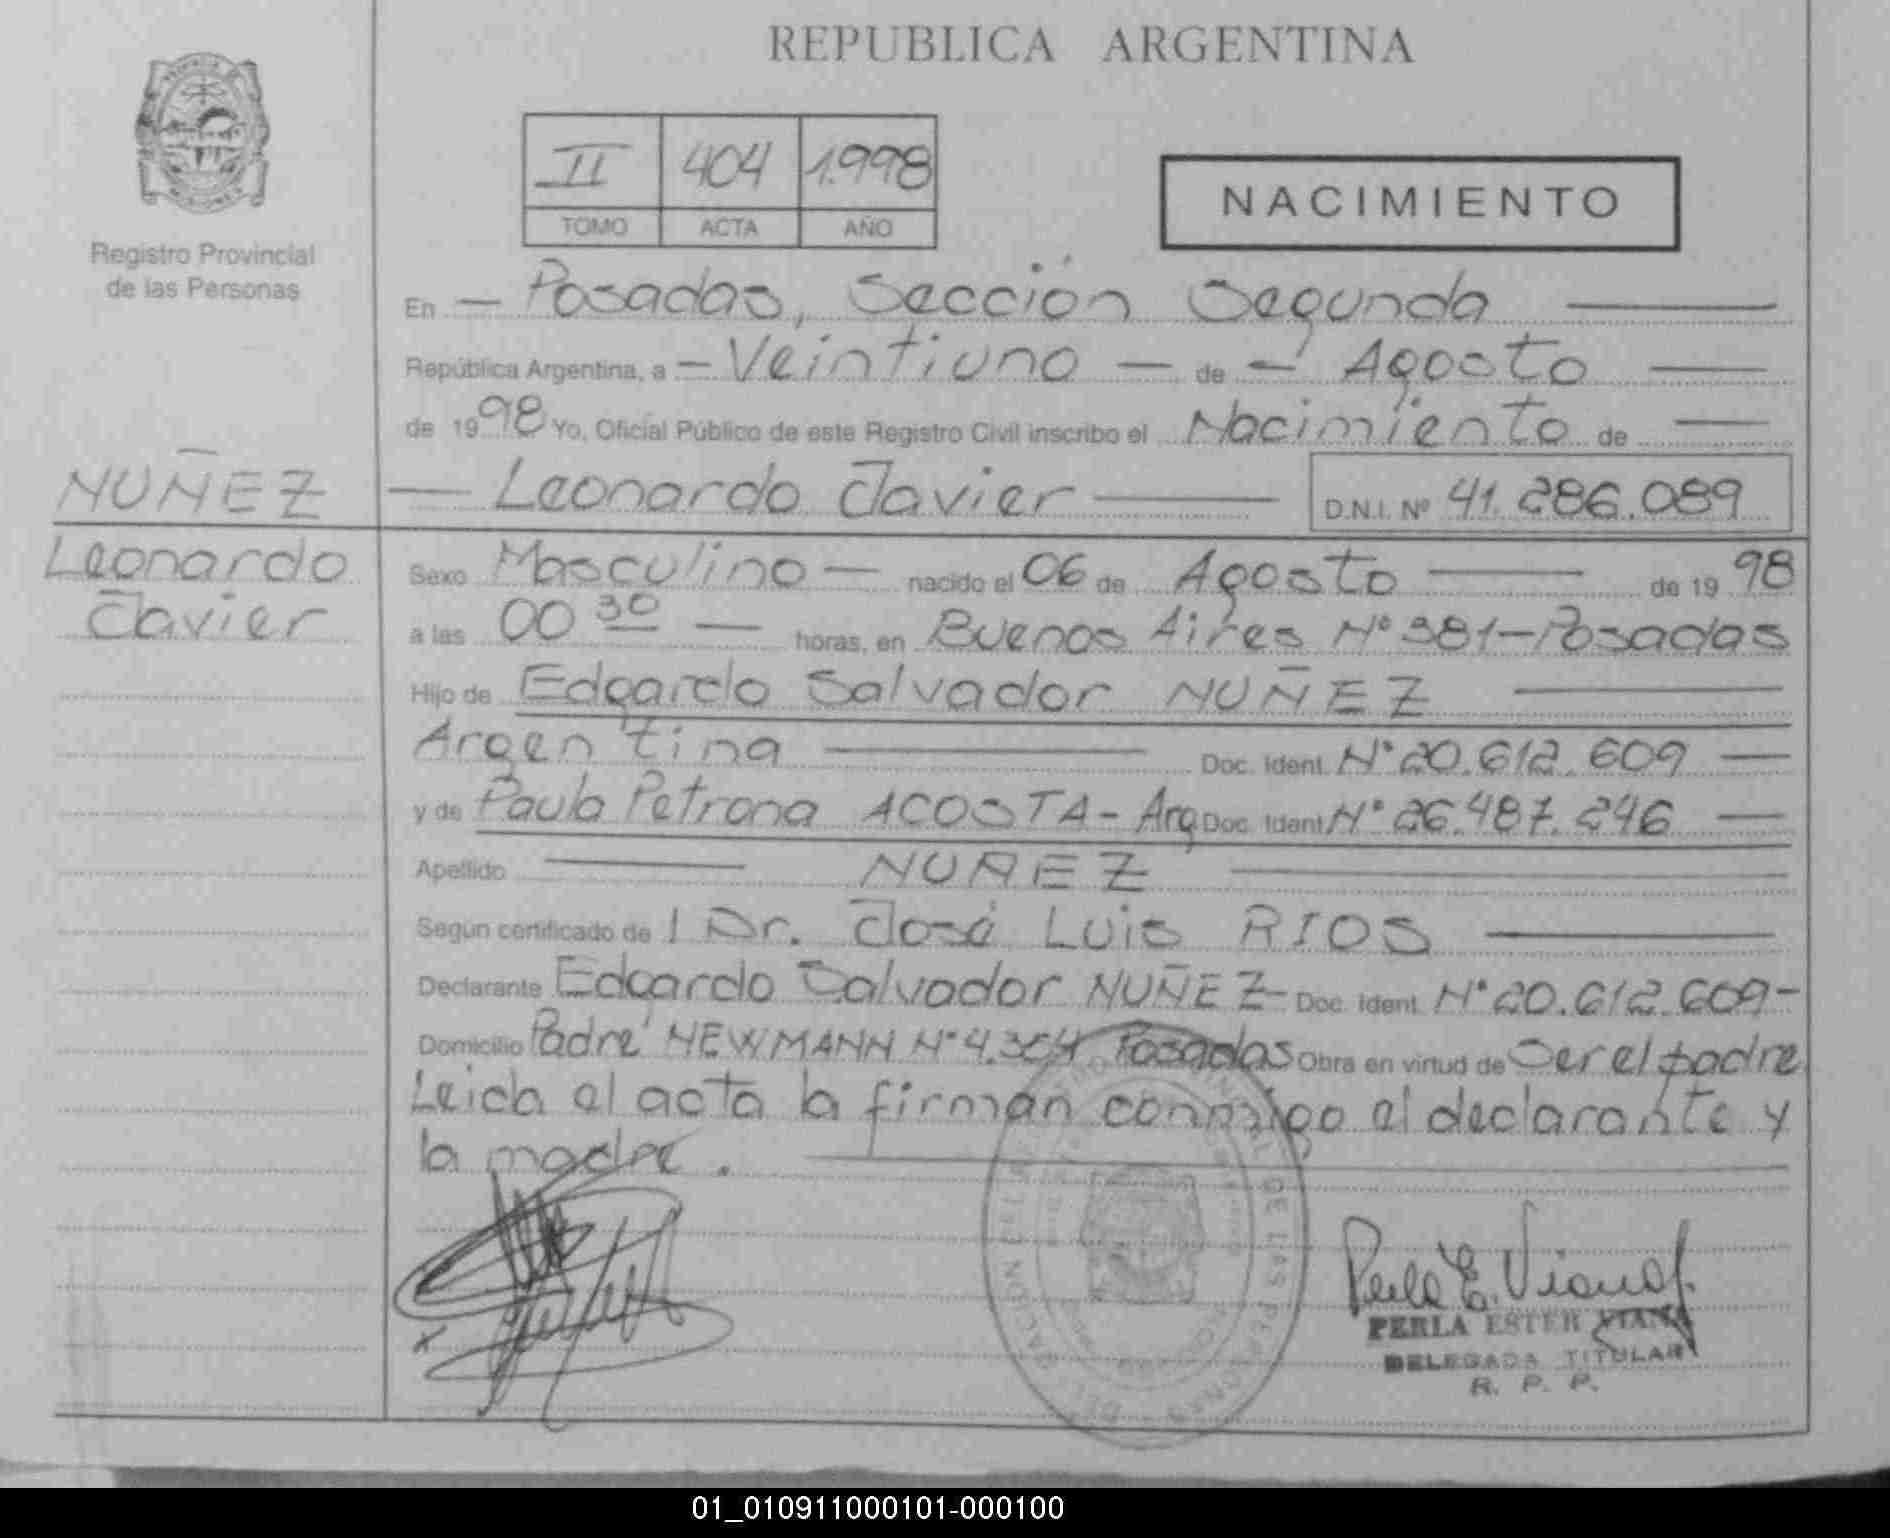 REPUBLICA ARGENTINA
II 404 1.998
TOMO ACTA AÑO
NACIMIENTO
Registro Provincial
de las Personas
En Posadas, Sección Segunda
República Argentina, a Veintiuno de Agosto
de 1998 Yo, Oficial Público de este Registro Civil inscribo el Nacimiento de
NUÑEZ
Leonardo
Javier
Leonardo Javier D.N.I. Nº 41.286.089
Sexo Masculino nacido el 06 de Agosto de 1998
a las 00 30 horas, en Buenos Aires Nº 981-Posadas
Hijo de Edgardo Salvador NUÑEZ
Argentina Doc. Ident. Nº 20.612.609
y de Paula Petrona ACOSTA - Arg Doc. Ident Nº 26.487.246
Apellido NUÑEZ
Según certificado de l Dr. José Luis RIOS
Declarante Edgardo Salvador NUÑEZ Doc. Ident. Nº 20.612.609-
Domicilio Padre NEWMANN Nº Posadas Obra en virtud de Ser el padre
Leida el acta la firman conmigo el declarante y
la madre.
Perla E. Viana
PERLA ESTER VIANA
DELEGADA TITULAR
R. P. P.
01_010911000101-000100